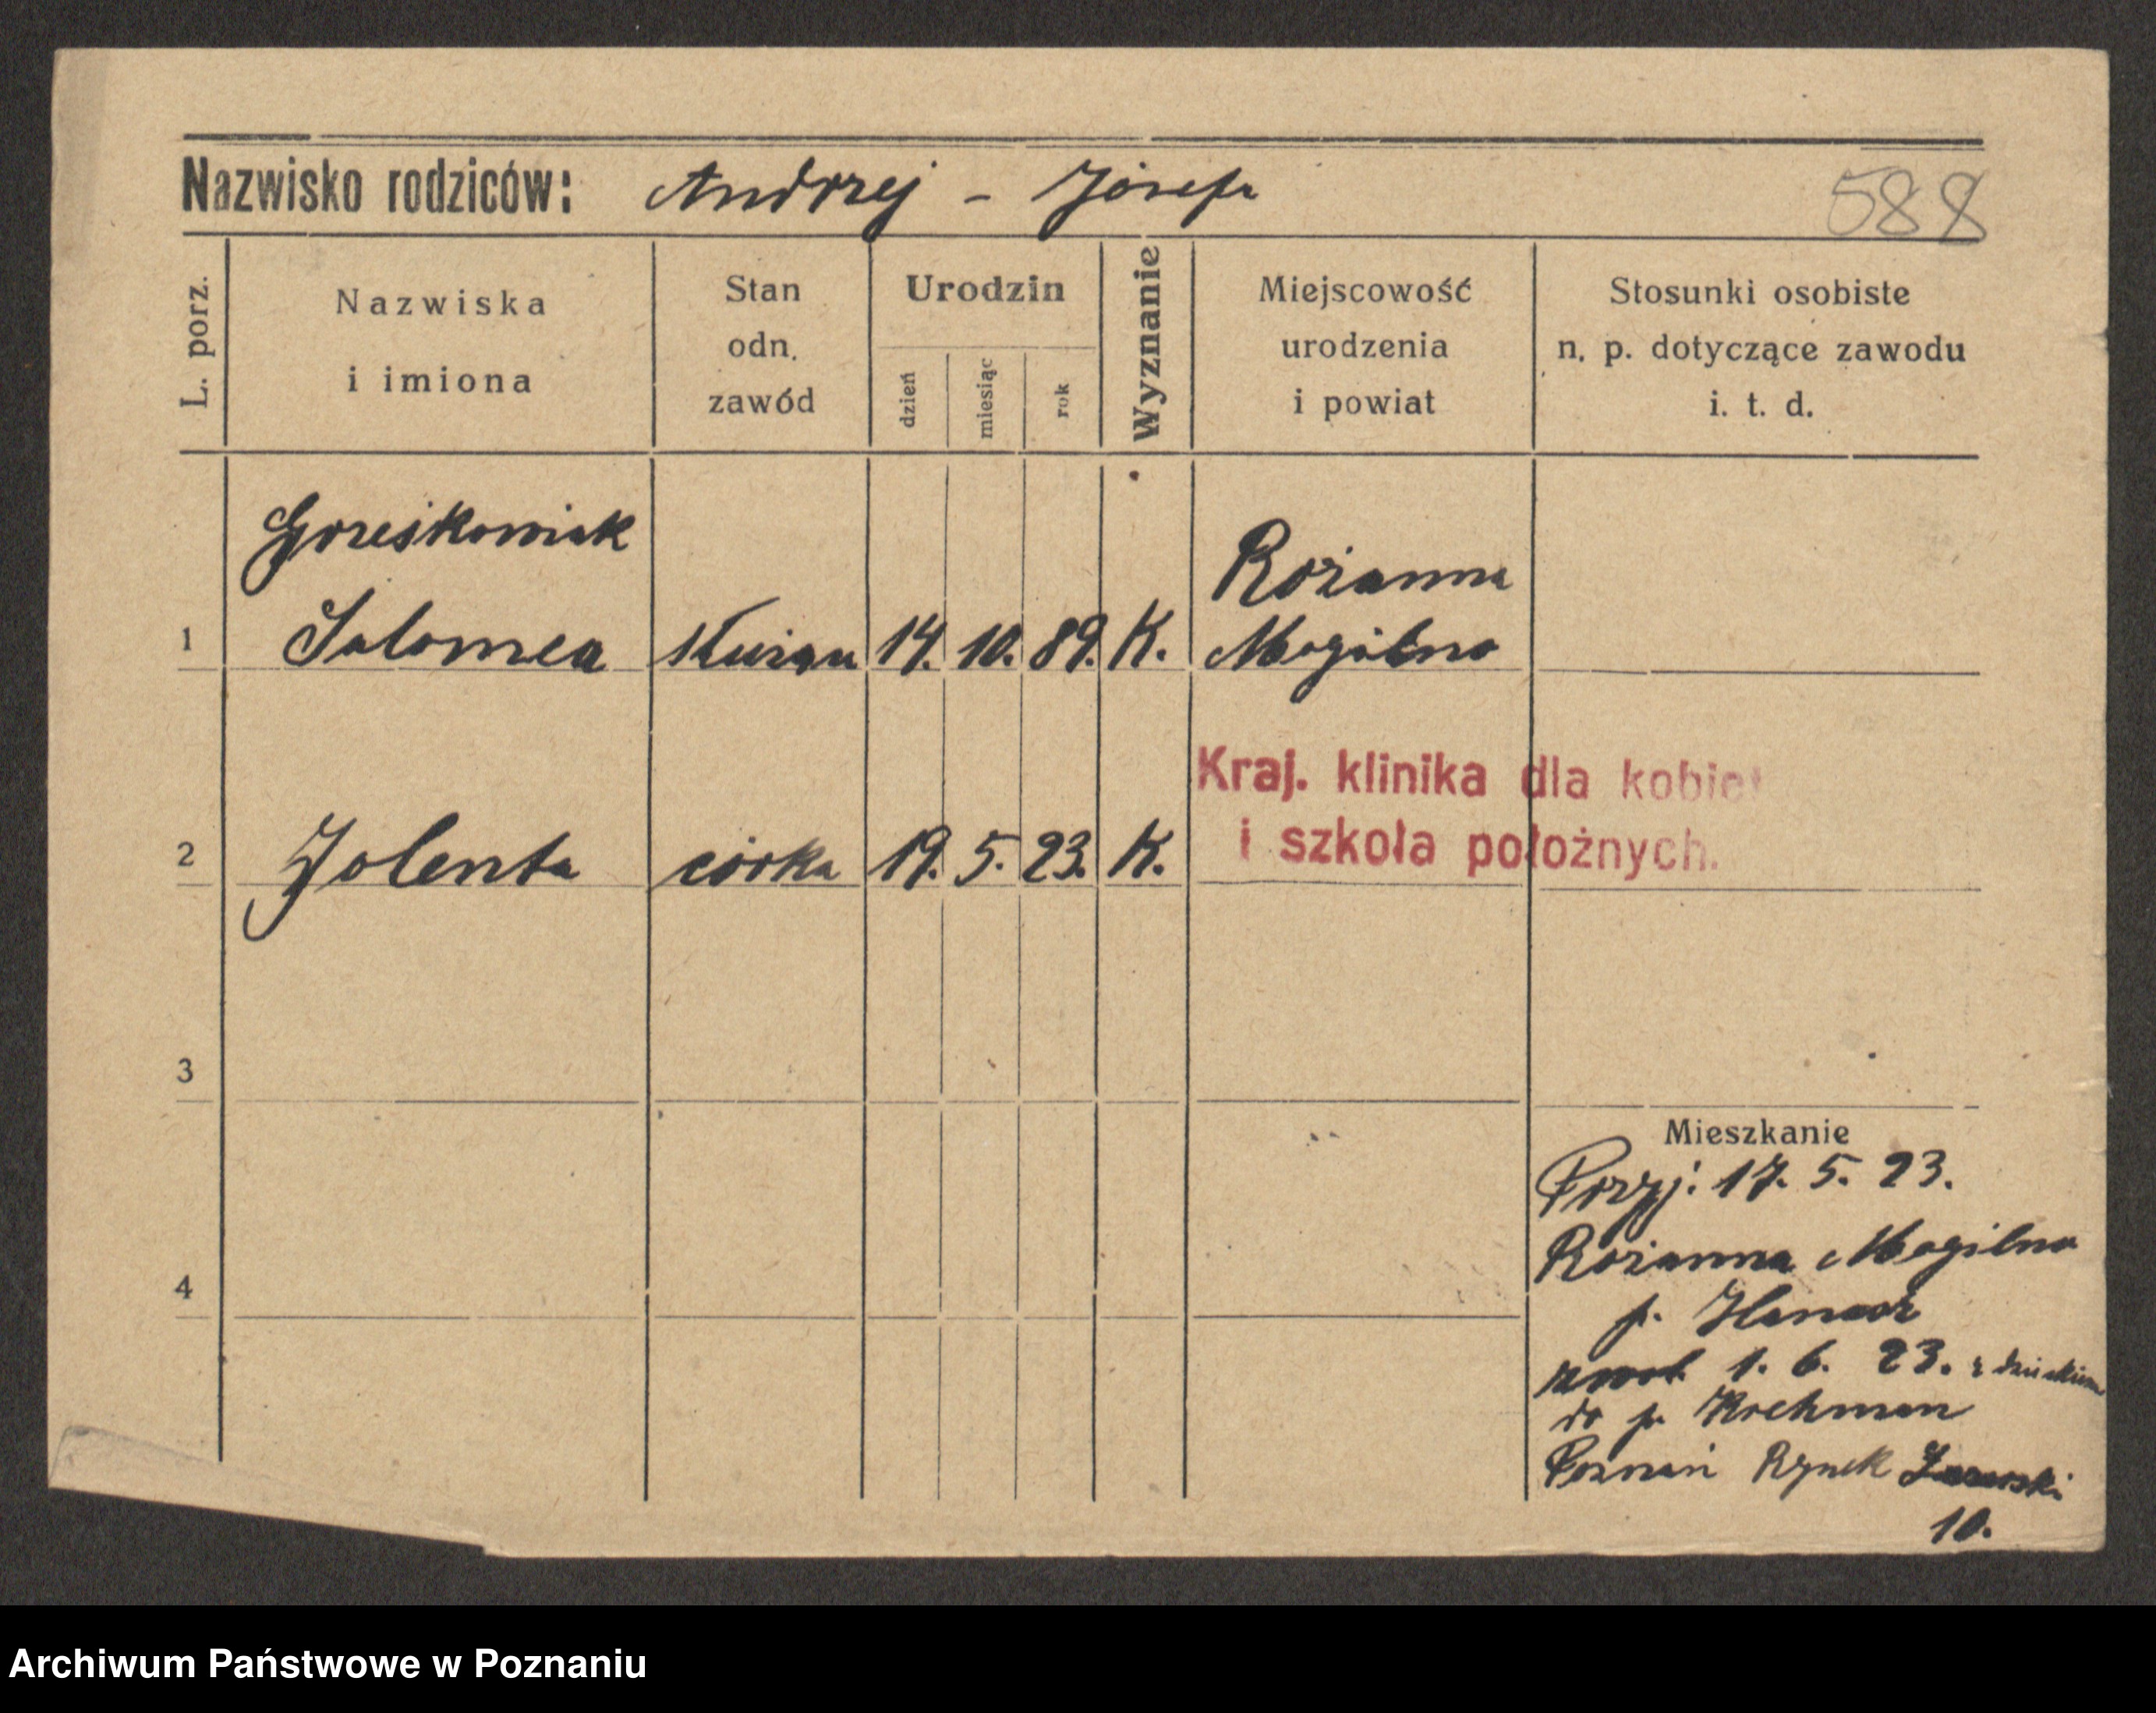 Nazwisko rodziców: Andrzej - Józefa
588
L. porz.
Nazwiska
i imiona
Stan
odn.
zawód
Urodzin
dzień
miesiąc
rok
Wyznanie
Miejscowość
urodzenia
i powiat
Stosunki osobiste
n. p. dotyczące zawodu
i. t. d.
Grześkowiak
Różanna
1 Salomea 14. 10. 89. K. Mogilno
Kraj. klinika dla kobiet
i szkoła położnych.
2 Jolenta córka 19. 5. 23. K.
3
Mieszkanie
Przyj: 17. 5. 23.
Różanna Mogilno
4
p.
zwol. 1. 6. 23. z dzieckiem
do p. Kochman
Poznań Rynek Łazarski
10.
Archiwum Państwowe w Poznaniu